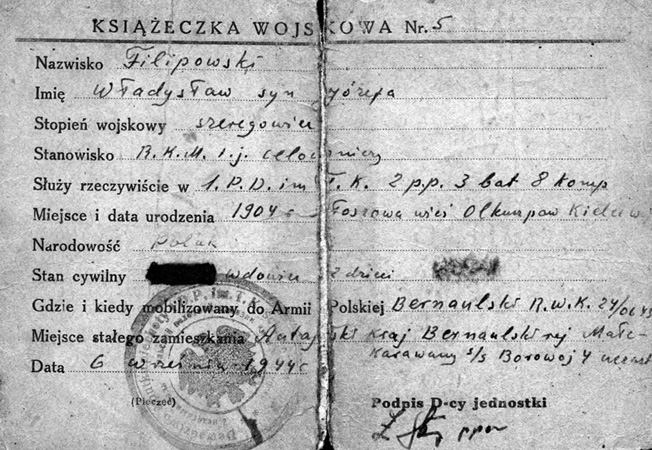 KSIĄŻECZKA WOJSKOWA Nr. 5
Nazwisko Filipowski
Imię Władysław syn Józefa
Stopień wojskowy szeregowiec
Stanowisko R.K.M. 1.j. celowniczy
Służy rzeczywiście w 1. P.D. im T.K. 2 p.p. 3 bat 8 komp
Miejsce i data urodzenia 1904 r. wieś
Narodowość Polak
Stan cywilny wdowiec 2 dzieci
Gdzie i kiedy mobilizowany do Armii Polskiej Bernaulski R.W.K. 24/06 43
Miejsce stałego zamieszkania kraj Bernaulski rej
s/s Borowoj 4
Data 6 września 1944
(Pieczęć)
Podpis D-cy jednostki
ppor